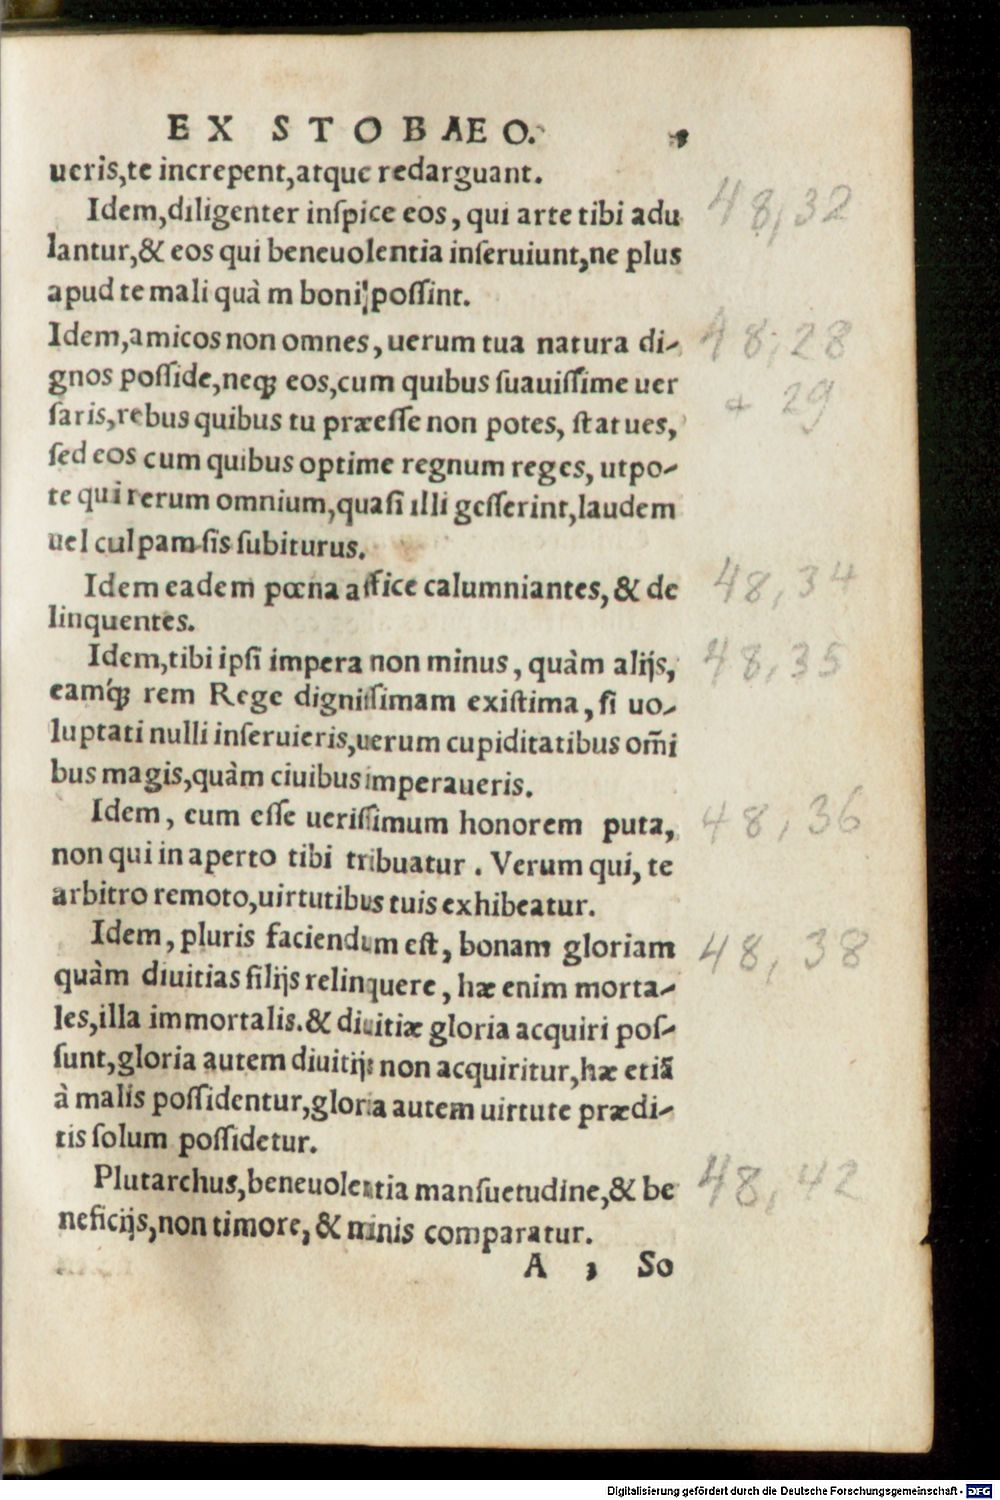 EX STOBAEO.
ueris,te increpent,atque redarguant.
Idem,diligenter inſpice eos, qui arte tibi adu 48,32
lantur,& eos qui beneuolentia inſeruiunt,ne plus
apud te mali quàm boni poſſint.
Idem,amicos non omnes, uerum tua natura di- 48,28
gnos poſſide,neqꝫ eos,cum quibus ſuauiſſime uer + 29
ſaris,rebus quibus tu præeſſe non potes, ſtatues,
ſed eos cum quibus optime regnum reges, utpo-
te qui rerum omnium,quaſi illi geſſerint,laudem
uel culpam ſis ſubiturus.
Idem eadem pœna affice calumniantes, & de 48,34
linquentes.
Idem,tibi ipſi impera non minus, quàm alijs, 48,35
eamqꝫ́ rem Rege digniſſimam exiſtima, ſi uo-
luptati nulli inſeruieris,uerum cupiditatibus om̃i
bus magis,quàm ciuibus imperaueris.
Idem, eum eſſe ueriſſimum honorem puta, 48,36
non qui in aperto tibi tribuatur. Verum qui, te
arbitro remoto,uirtutibus tuis exhibeatur.
Idem, pluris faciendum eſt, bonam gloriam 48,38
quàm diuitias filijs relinquere, hæ enim morta-
les,illa immortalis.& diuitiæ gloria acquiri poſ-
ſunt,gloria autem diuitijs non acquiritur,hæ etiã
à malis poſſidentur,gloria autem uirtute prædi-
tis ſolum poſſidetur.
Plutarchus,beneuolentia manſuetudine,& be 48,42
neficijs,non timore, & minis comparatur.
A 3 So
Digitalisierung gefördert durch die Deutsche Forschungsgemeinschaft - DFG